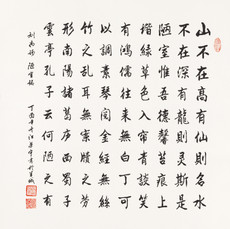 山不在高有仙則名水
不在深有龍則靈斯是
陋室惟吾德馨苔痕上
堦綠草色入簾青談笑
有鴻儒往來無白丁可
以調素琴閱金經無絲
竹之亂耳無案牘之勞
形南陽諸葛廬西蜀子
雲亭孔子云何陋之有
劉禹錫 陋室銘
丁酉年